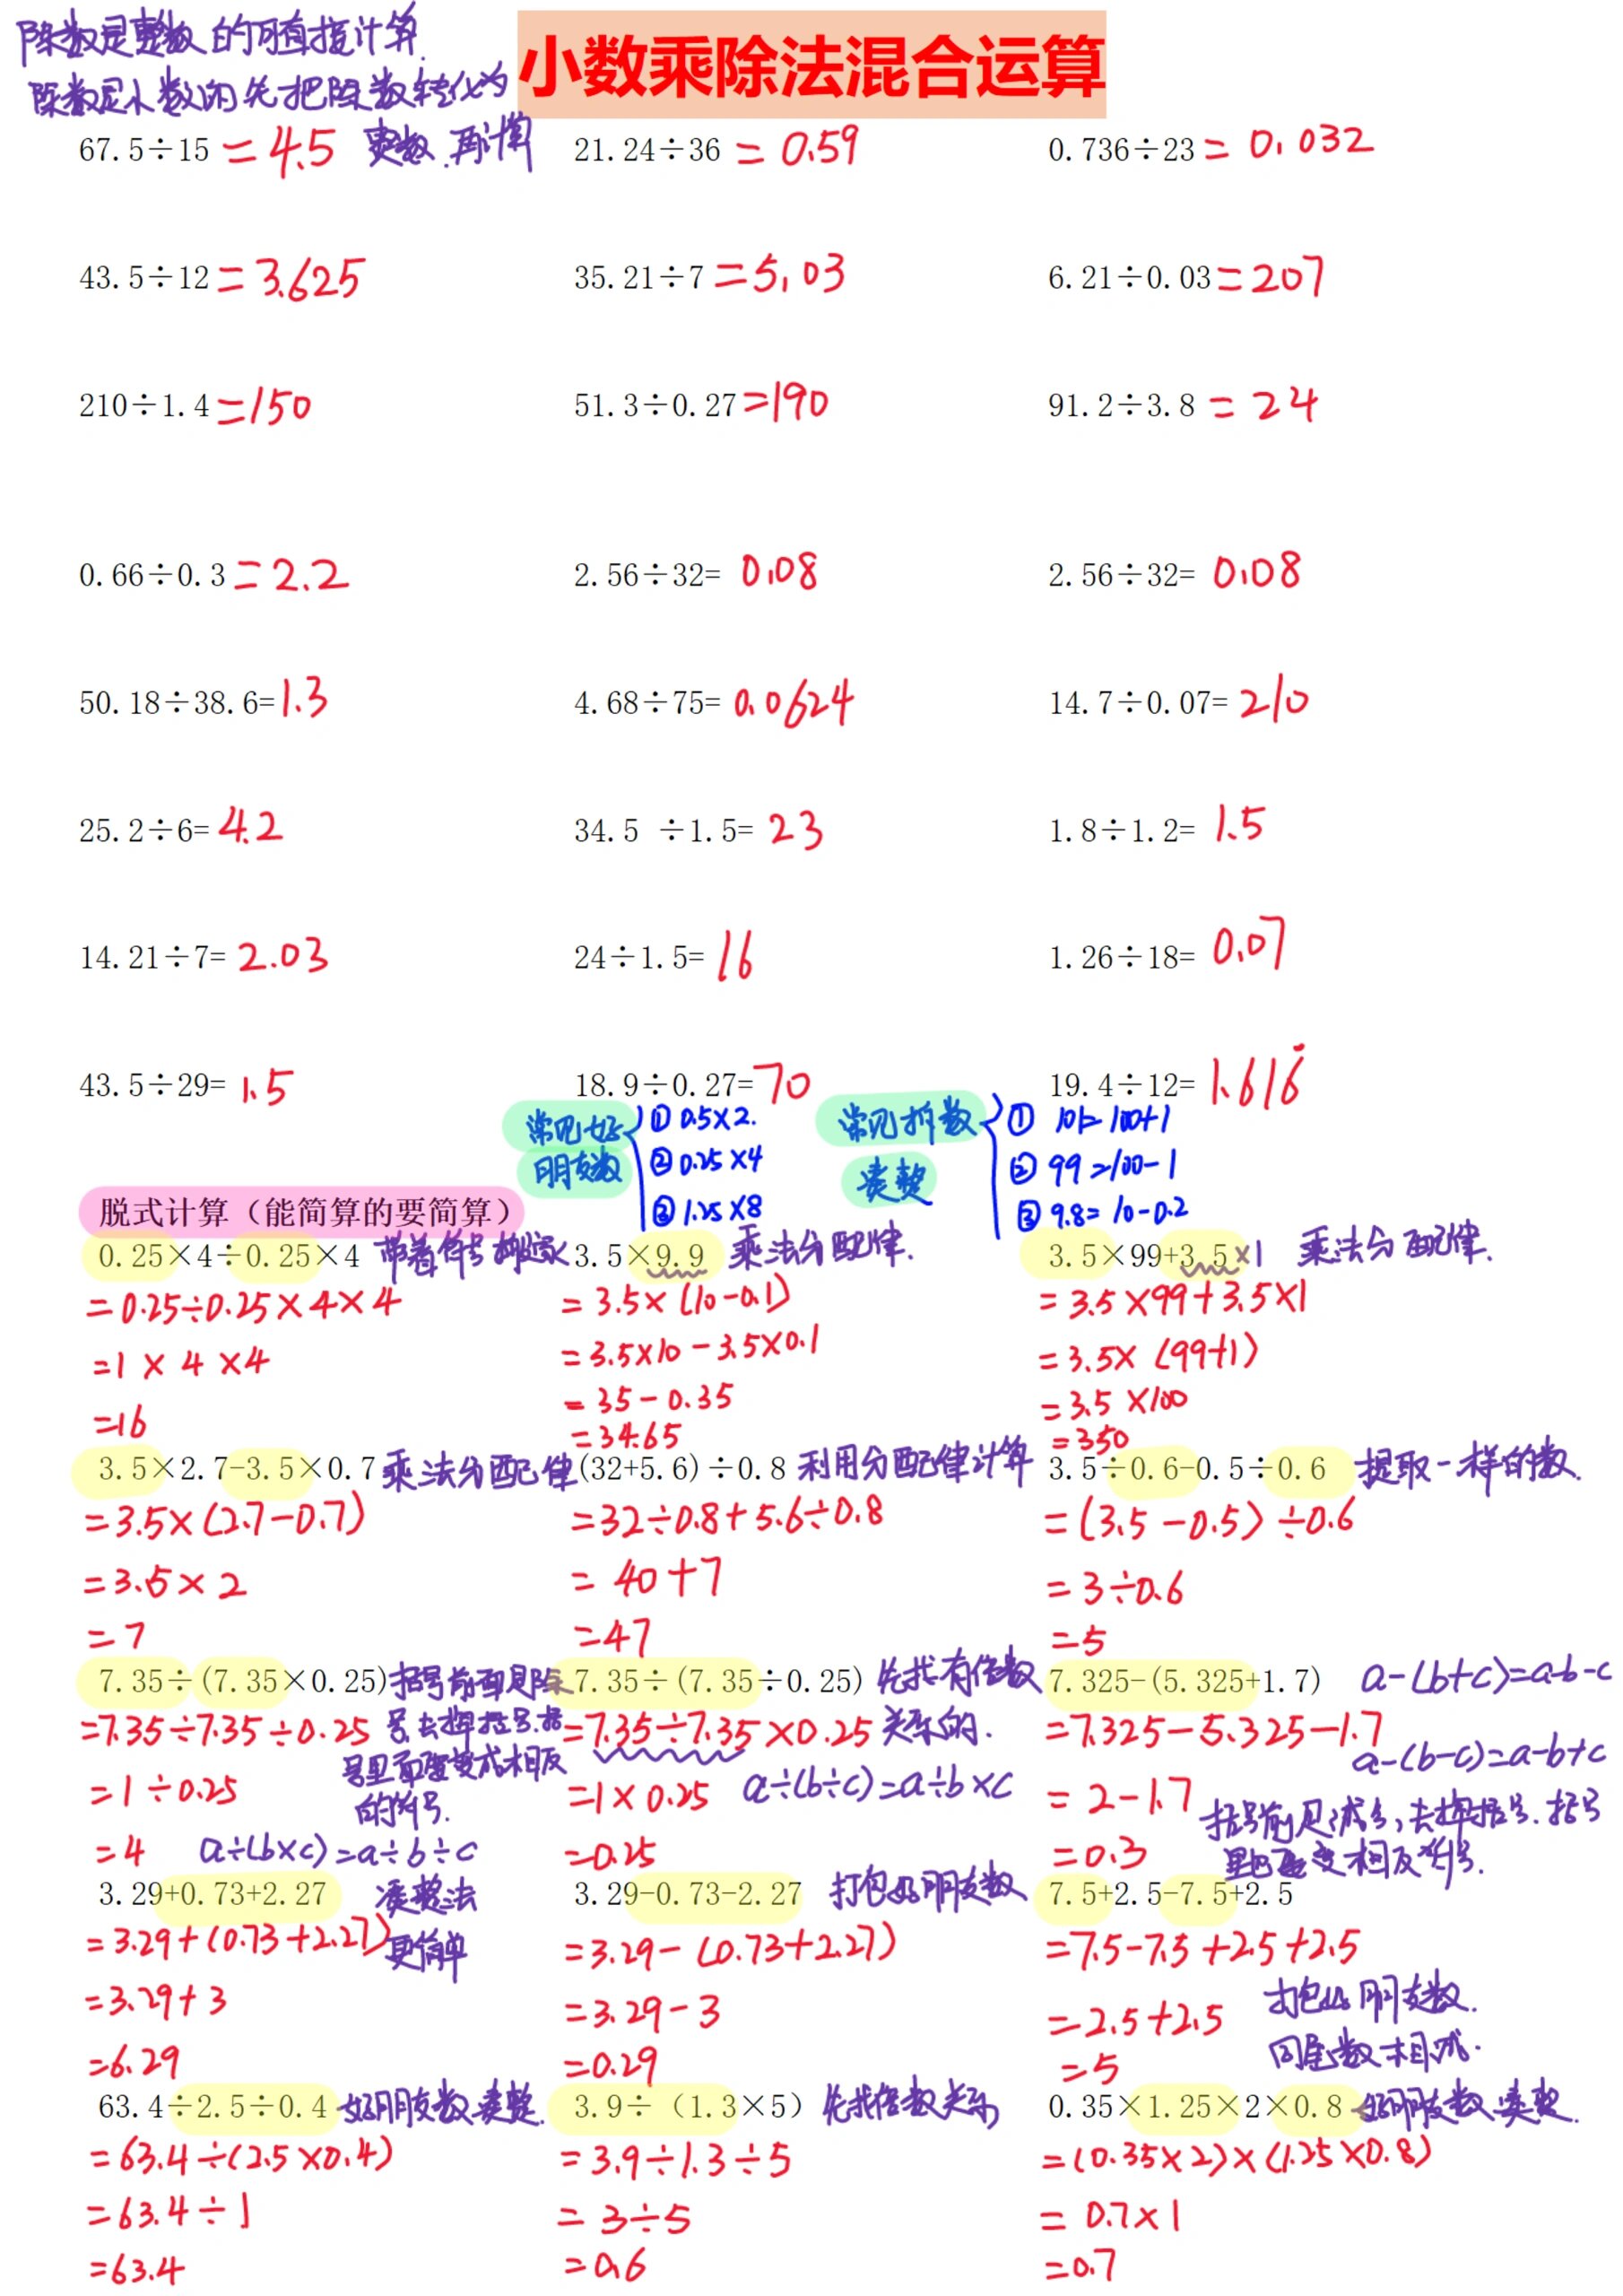 除数是整数的可直接计算.
小数乘除法混合运算
除数是小数的先把除数转化为
整数.再计算
67.5÷15=4.5
21.24÷36=0.59
0.736÷23=0.032
43.5÷12=3.625
35.21÷7=5.03
6.21÷0.03=207
210÷1.4=150
51.3÷0.27=190
91.2÷3.8=24
0.66÷0.3=2.2
2.56÷32=0.08
2.56÷32=0.08
50.18÷38.6=1.3
4.68÷75=0.0624
14.7÷0.07=210
25.2÷6=4.2
34.5 ÷1.5=23
1.8÷1.2=1.5
14.21÷7=2.03
24÷1.5=16
1.26÷18=0.07
43.5÷29=1.5
18.9÷0.27=70
19.4÷12=1.616̇
常见好
朋友数
① 0.5×2.
② 0.25×4
③ 1.25×8
常见拆数
凑整
① 101=100+1
② 99=100-1
③ 9.8=10-0.2
脱式计算（能简算的要简算）
0.25×4÷0.25×4 带着符号搬家
=0.25÷0.25×4×4
=1×4×4
=16
3.5×9.9 乘法分配律.
=3.5×(10-0.1)
=3.5×10-3.5×0.1
=35-0.35
=34.65
3.5×99+3.5×1 乘法分配律.
=3.5×99+3.5×1
=3.5×(99+1)
=3.5×100
=350
3.5×2.7-3.5×0.7 乘法分配律
=3.5×(2.7-0.7)
=3.5×2
=7
(32+5.6)÷0.8 利用分配律计算
=32÷0.8+5.6÷0.8
=40+7
=47
3.5÷0.6-0.5÷0.6 提取一样的数.
=(3.5-0.5)÷0.6
=3÷0.6
=5
7.35÷(7.35×0.25) 括号前面是除
号去掉括号.括
号里面要变成相反
的符号.
=7.35÷7.35÷0.25
=1÷0.25
=4
a÷(b×c)=a÷b÷c
7.35÷(7.35÷0.25) 先找有倍数
关系的.
=7.35÷7.35×0.25
=1×0.25
a÷(b÷c)=a÷b×c
=0.25
7.325-(5.325+1.7)
a-(b+c)=a-b-c
=7.325-5.325-1.7
a-(b-c)=a-b+c
=2-1.7
=0.3
括号前是减号,去掉括号.括号
里面要变相反符号.
3.29+0.73+2.27 凑整法
更简单
=3.29+(0.73+2.27)
=3.29+3
=6.29
3.29-0.73-2.27 打包好朋友数
=3.29-(0.73+2.27)
=3.29-3
=0.29
7.5+2.5-7.5+2.5
=7.5-7.5+2.5+2.5
=2.5+2.5
=5
打包好朋友数.
同尾数相减.
63.4÷2.5÷0.4 好朋友数凑整.
=63.4÷(2.5×0.4)
=63.4÷1
=63.4
3.9÷（1.3×5） 先找倍数关系
=3.9÷1.3÷5
=3÷5
=0.6
0.35×1.25×2×0.8 好朋友数凑整.
=(0.35×2)×(1.25×0.8)
=0.7×1
=0.7